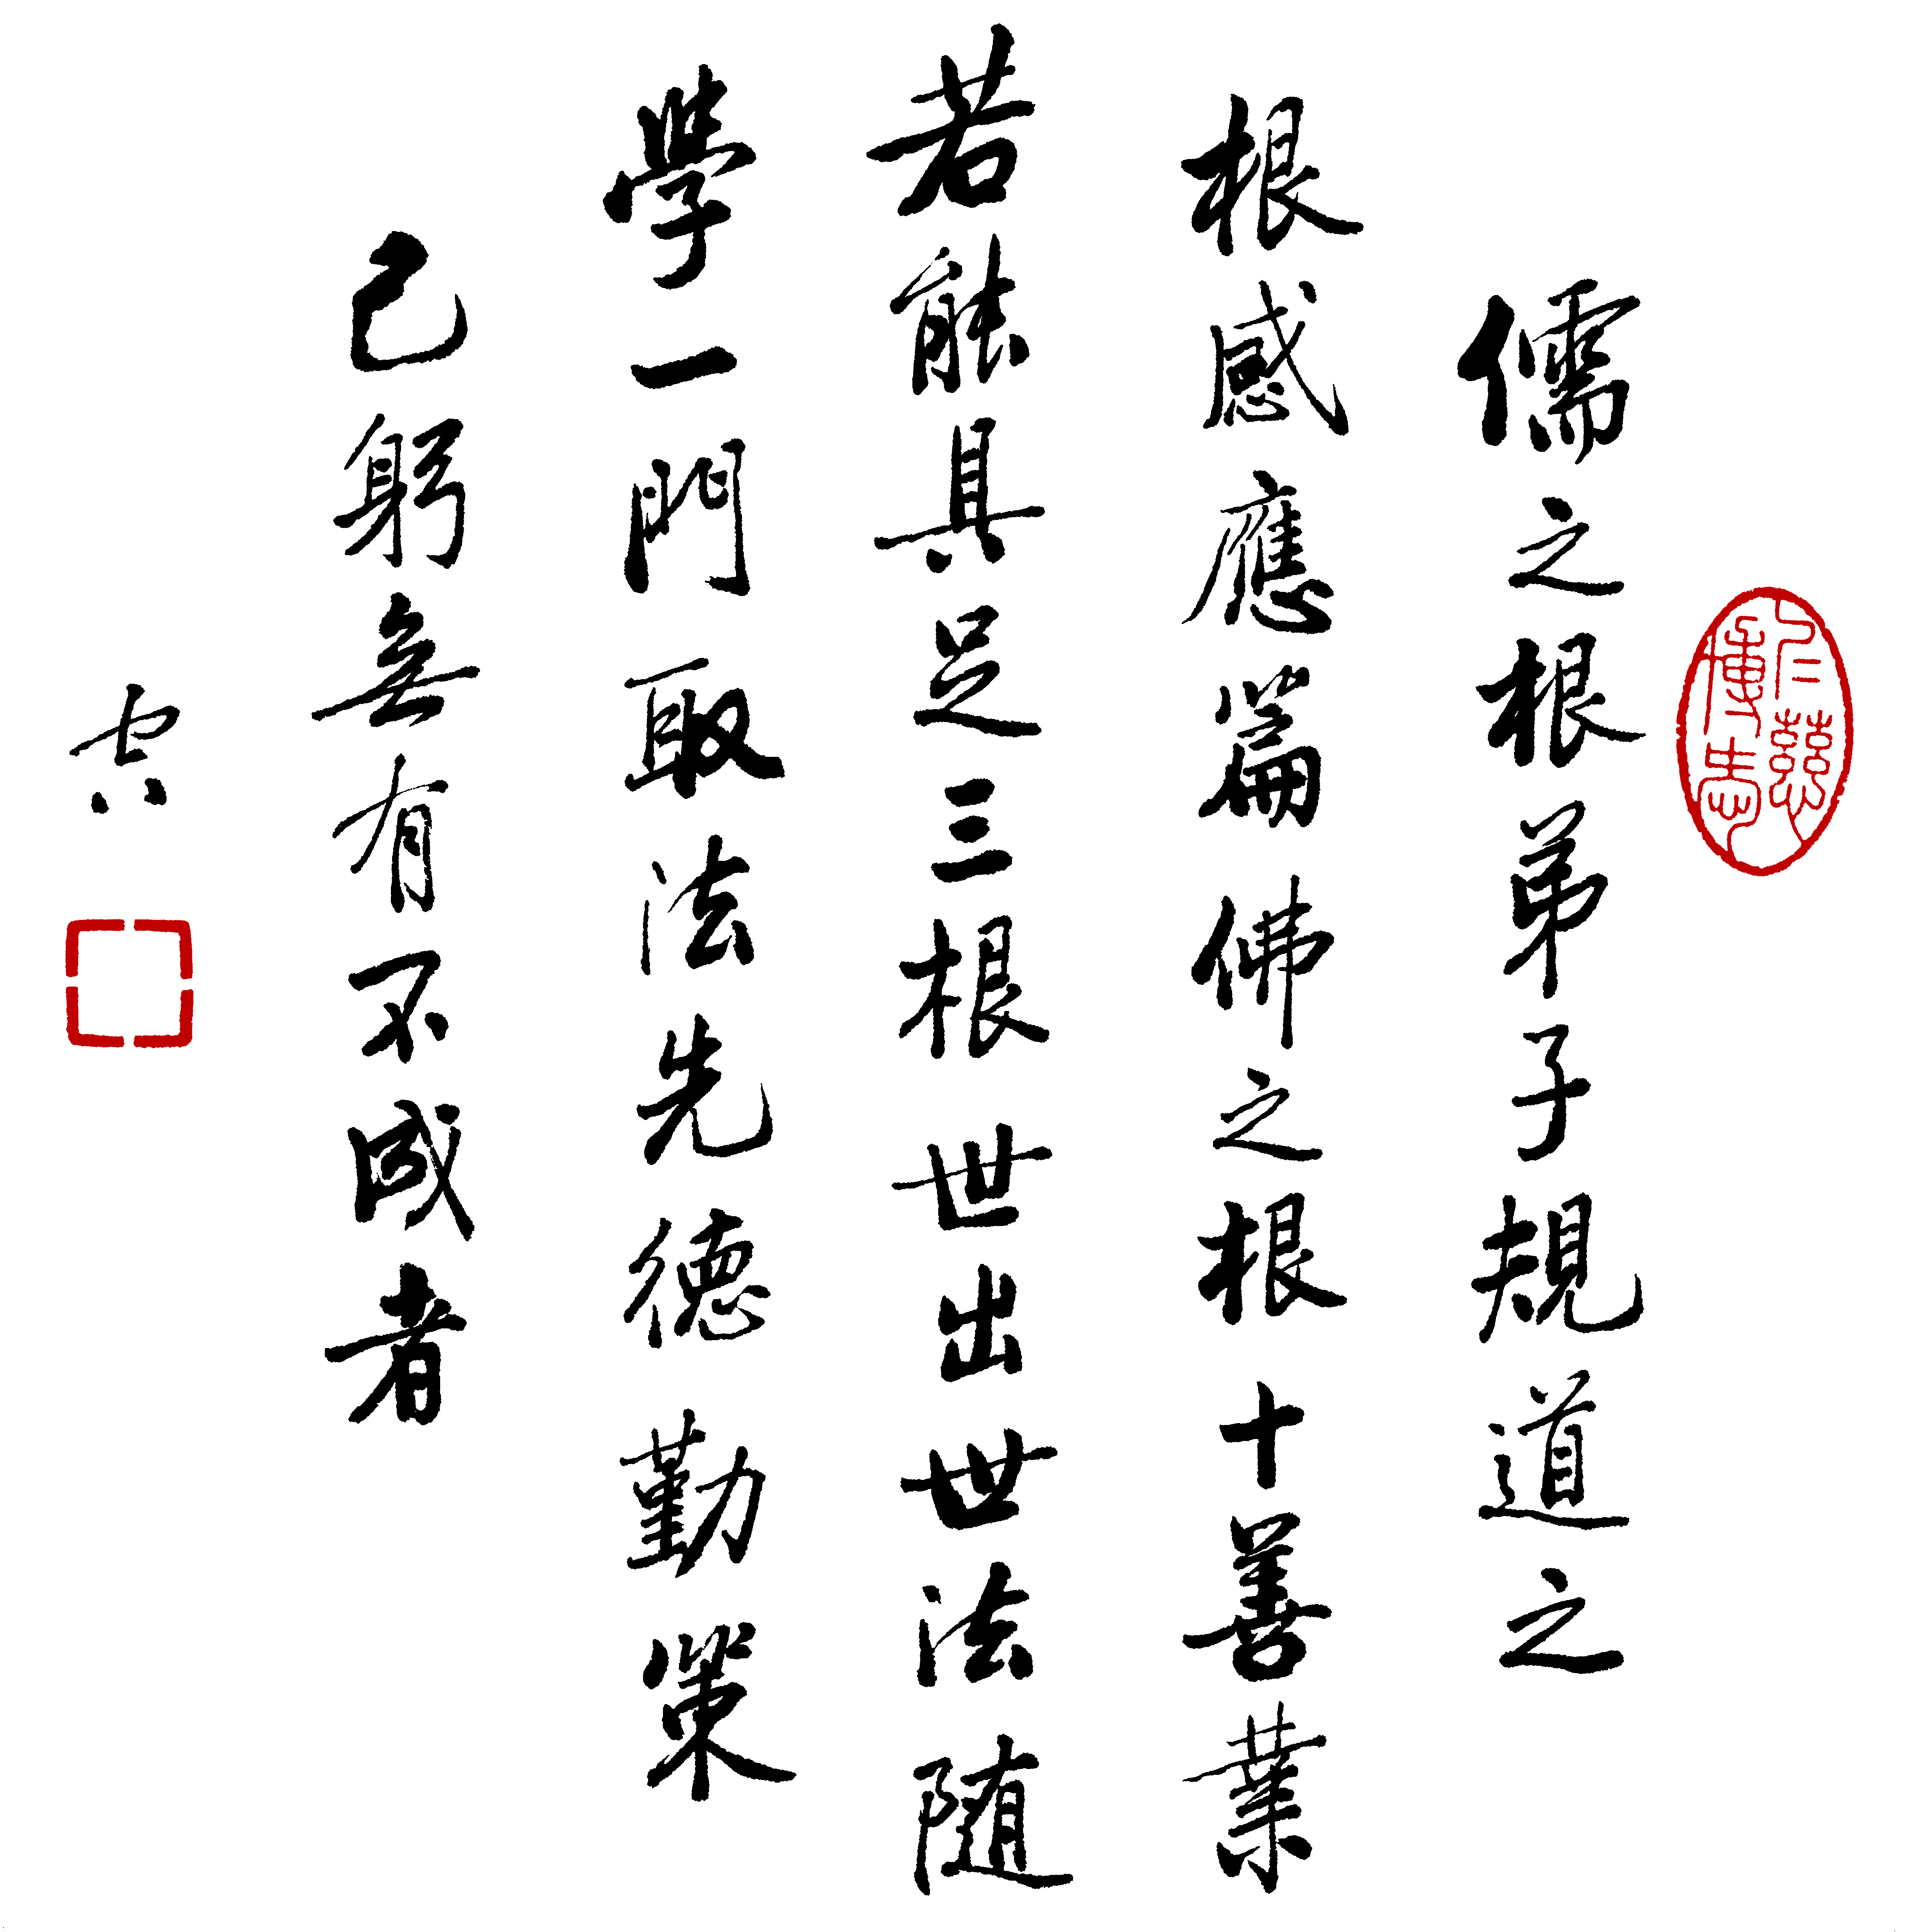 儒之根弟子規道之
根感應篇佛之根十善業
若能具足三根世出世法随
學一門取法先德勤策
己躬無有不成者